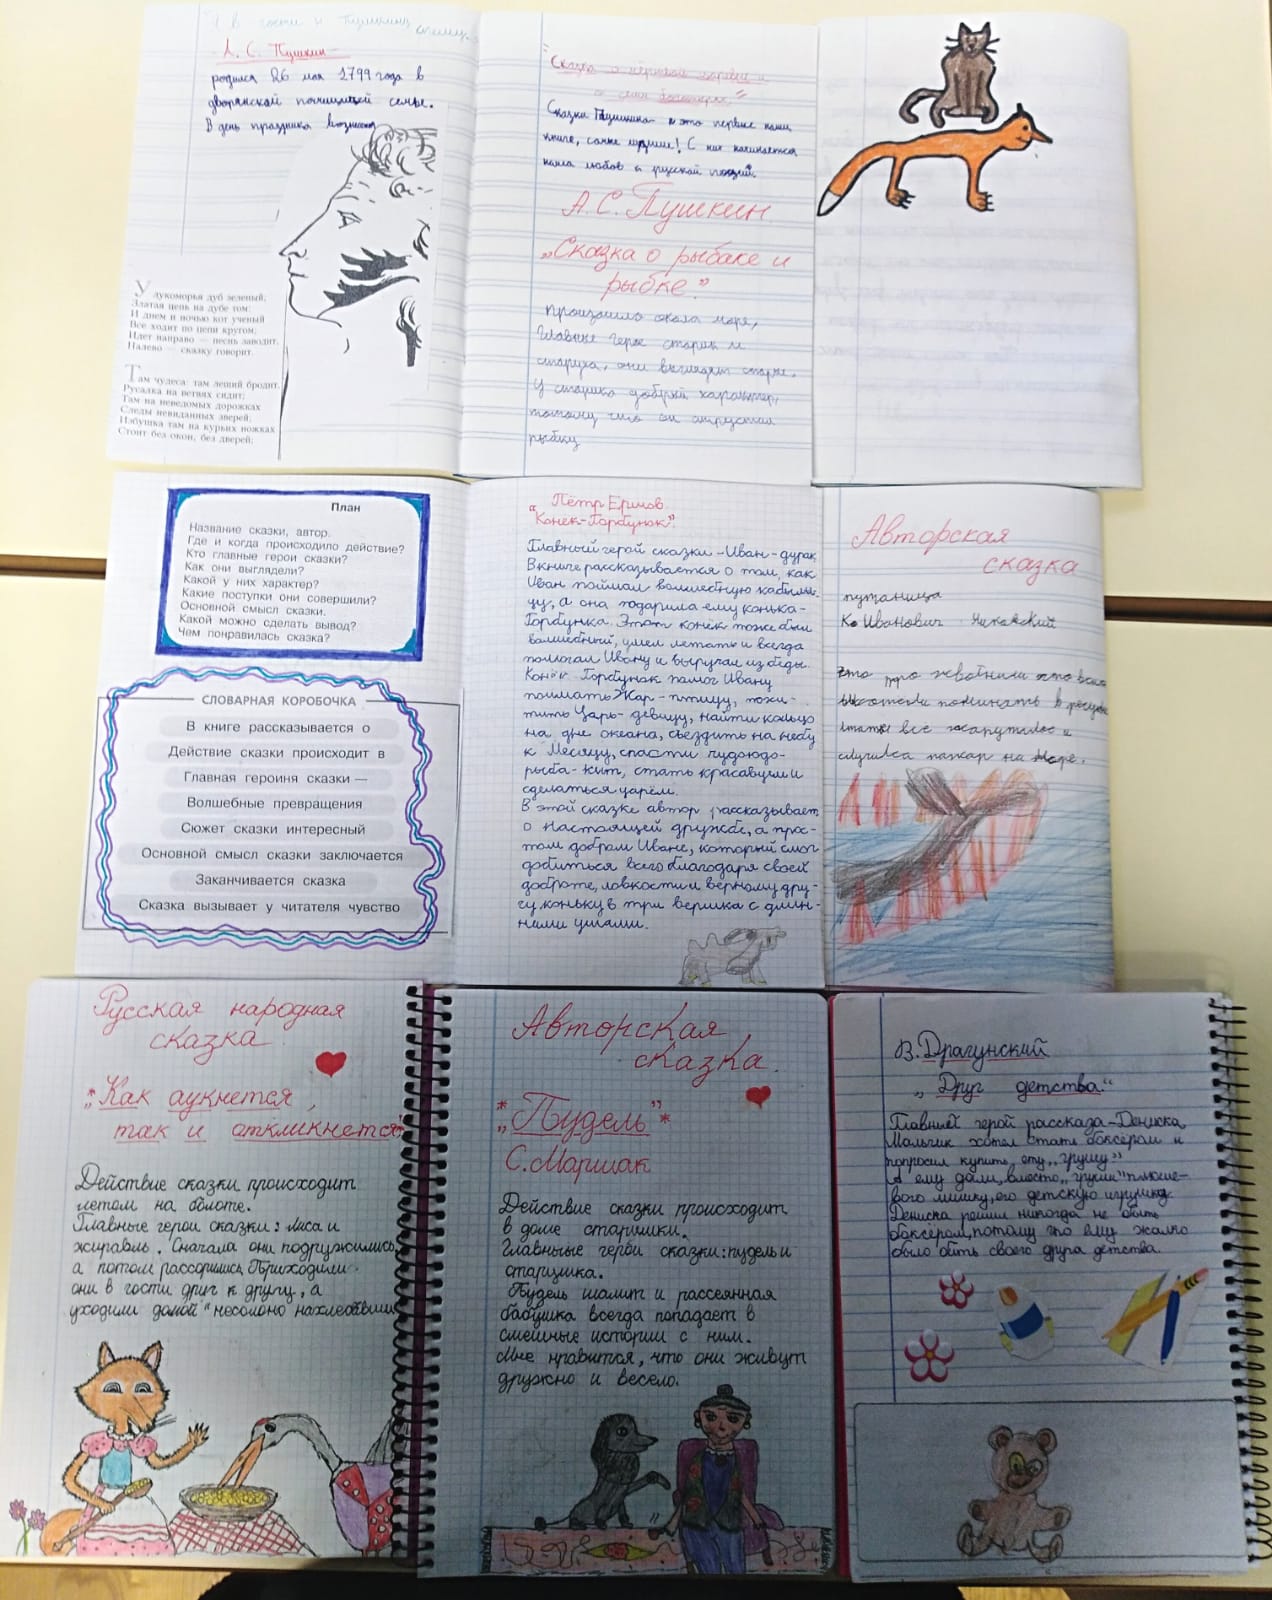 в гости к Пушкину
А. С. Пушкин
родился 26 мая 1799 года в
дворянской семье.
В день праздника
У лукоморья дуб зеленый;
Златая цепь на дубе том:
И днем и ночью кот ученый
Все ходит по цепи кругом;
Идет направо — песнь заводит,
Налево — сказку говорит.
Там чудеса: там леший бродит,
Русалка на ветвях сидит;
Там на неведомых дорожках
Следы невиданных зверей;
Избушка там на курьих ножках
Стоит без окон, без дверей;
"Сказка о мёртвой царевне и
о семи богатырях"
Сказки Пушкина - это первые наши
книги, самые лучшие! С них начинается
наша любов к русской поэзии.
А.С. Пушкин
„Сказка о рыбаке и
рыбке."
Произошло окола моря,
Главные герои старик и
старуха, они выглядят старые.
У старика добрый характер,
потому что он отпустил
рыбку
План
Название сказки, автор.
Где и когда происходило действие?
Кто главные герои сказки?
Как они выглядели?
Какой у них характер?
Какие поступки они совершили?
Основной смысл сказки.
Какой можно сделать вывод?
Чем понравилась сказка?
СЛОВАРНАЯ КОРОБОЧКА
В книге рассказывается о
Действие сказки происходит в
Главная героиня сказки —
Волшебные превращения
Сюжет сказки интересный
Основной смысл сказки заключается
Заканчивается сказка
Сказка вызывает у читателя чувство
Пётр Ершов
"Конёк-Горбунок".
Главный герой сказки - Иван - дурак.
В книге рассказывается о том, как
Иван поймал волшебную кабыли-
цу, а она подарила ему конька-
Горбунка. Этот конёк тоже был
волшебный, умел летать и всегда
помогал Ивану и выручал из беды.
Конёк Горбунок помог Ивану
поймать Жар-птицу, похи-
тить Царь-девицу, найти кольцо
на дне океана, съездить на небо
к Месяцу, спасти чудоюдо-
рыба-кит, стать красавцем и
сделаться царём.
В этой сказке автор рассказывает
о настоящей дружбе, а прос-
том добром Иване, который смог
добиться всего благодаря своей
доброте, ловкости и верному дру-
гу, коньку в три вершка с длин-
ными ушами.
Авторская
сказка
путаница
Ко Иванович Чиковский
это про
поминять
все
случился пажар на море.
Русская народная
сказка
„Как аукнется,
так и откликнется
Действие сказки происходит
летом на болоте.
Главные герои сказки: лиса и
журавль. Сначала они подружились,
а потом рассорились. Приходили
они в гости друг к другу, а
уходили домой "несолоно нахлебавши
Авторская
сказка.
*„Пудель"*
С. Маршак
Действие сказки происходит
в доме старушки.
Главныые герои сказки: пудель и
старушка.
Пудель шалит и рассеянная
бабушка всегда попадает в
смешные истории с ним.
Мне нравится, что они живут
дружно и весело.
В. Драгунский
„Друг детства"
Главный герой рассказа - Дениска.
Мальчик хотел стать боксёром и
попросил купить ему „грушу"
А ему дали, вместо „груши" плюше-
вого мишку, его детскую игрушку.
Дениска решил никогда не быть
боксёром, потому что ему жалко
было бить своего друга детства.